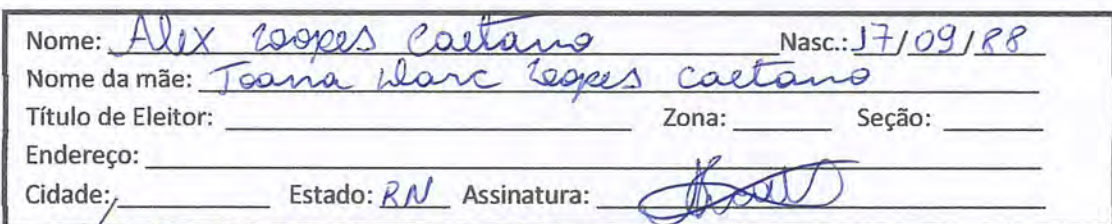 Nome: Alix Lopes Caetano Nasc.: 17/09/88
Nome da mãe: Joana Darc Lopes Caetano
Título de Eleitor: Zona: Seção:
Endereço:
Cidade: Estado: RN Assinatura: